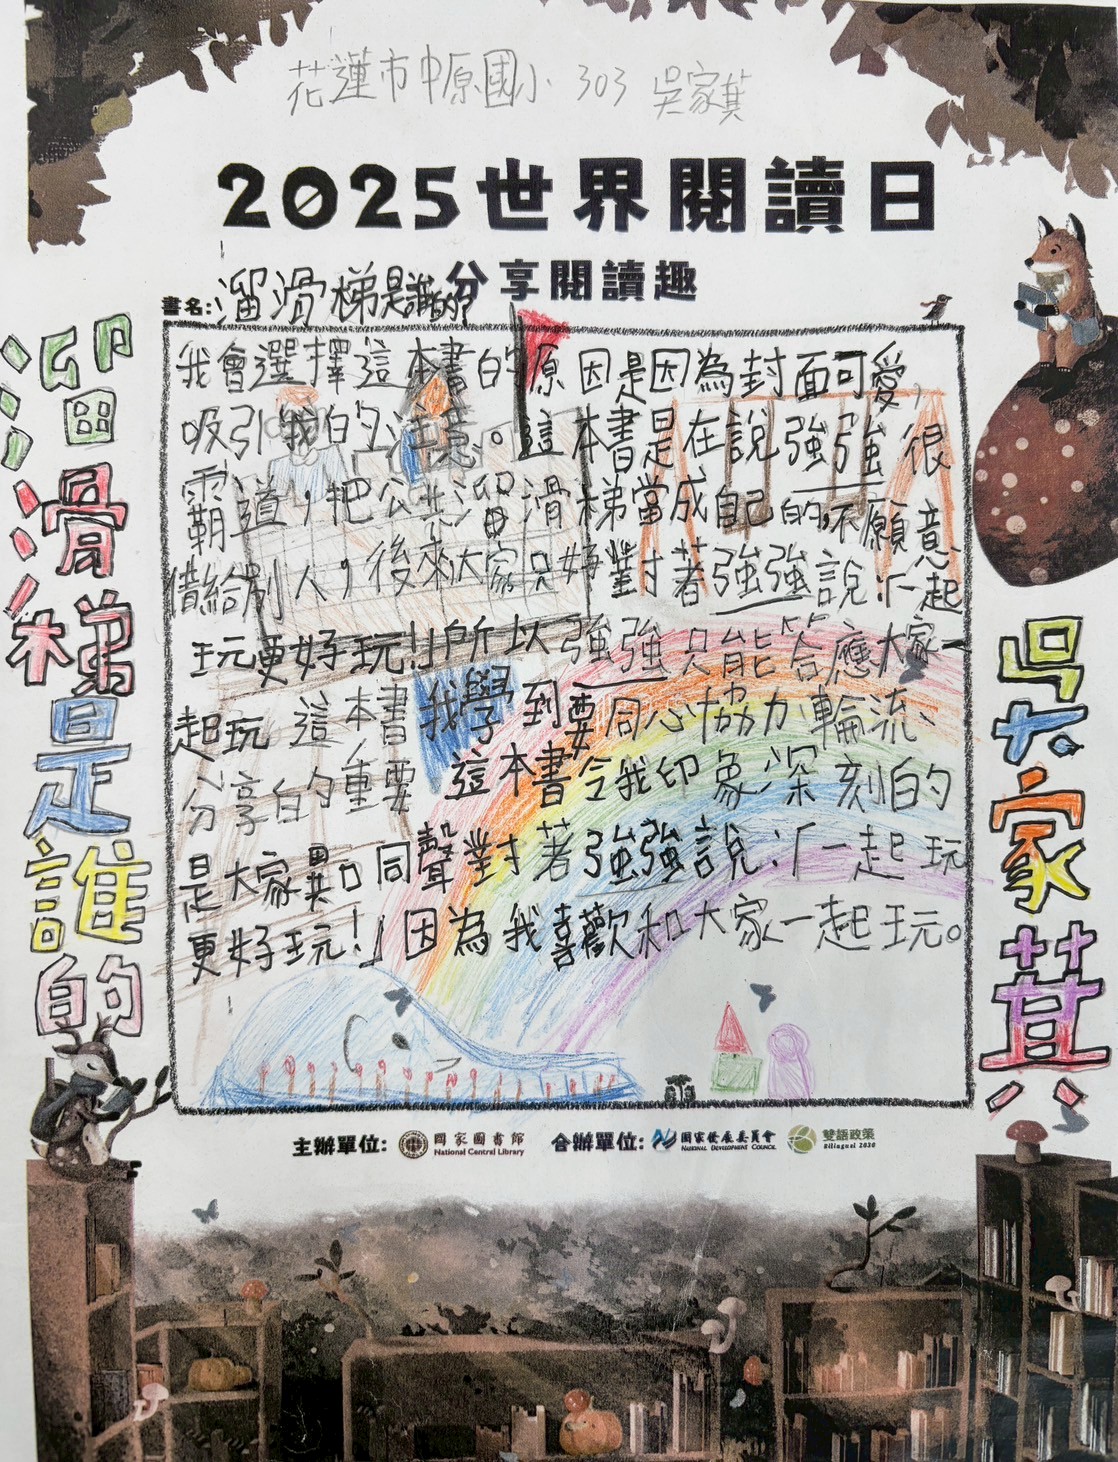 花蓮市中原國小 303 吳家萁
2025世界閱讀日
分享閱讀趣
書名:溜滑梯是誰的?
溜滑梯是誰的
我會選擇這本書的原因是因為封面可愛,
吸引我的注意。這本書是在說強強很
霸道,把公共溜滑梯當成自己的,不願意
借給別人,後來大家只好對著強強說:「一起
玩更好玩!」所以強強只能答應大家一
起玩 這本書我學到要同心協力、輪流、
分享的重要 這本書令我印象深刻的
是大家異口同聲對著強強說:「一起玩
更好玩!」因為我喜歡和大家一起玩。
吳家萁
主辦單位: 國家圖書館 National Central Library 合辦單位: 國家發展委員會 National Development Council 雙語政策 Bilingual 2030